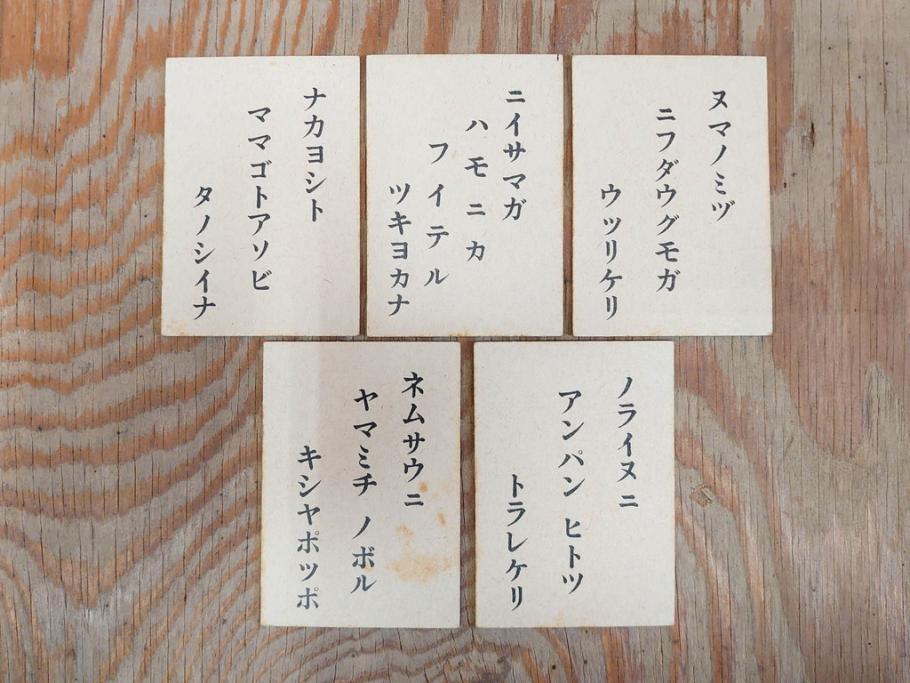 ナカヨシト
ママゴトアソビ
タノシイナ
ニイサマガ
ハモニカ
フイテル
ツキヨカナ
ヌマノミヅ
ニフダウグモガ
ウツリケリ
ネムサウニ
ヤマミチ ノボル
キシヤポツポ
ノライヌニ
アンパン ヒトツ
トラレケリ